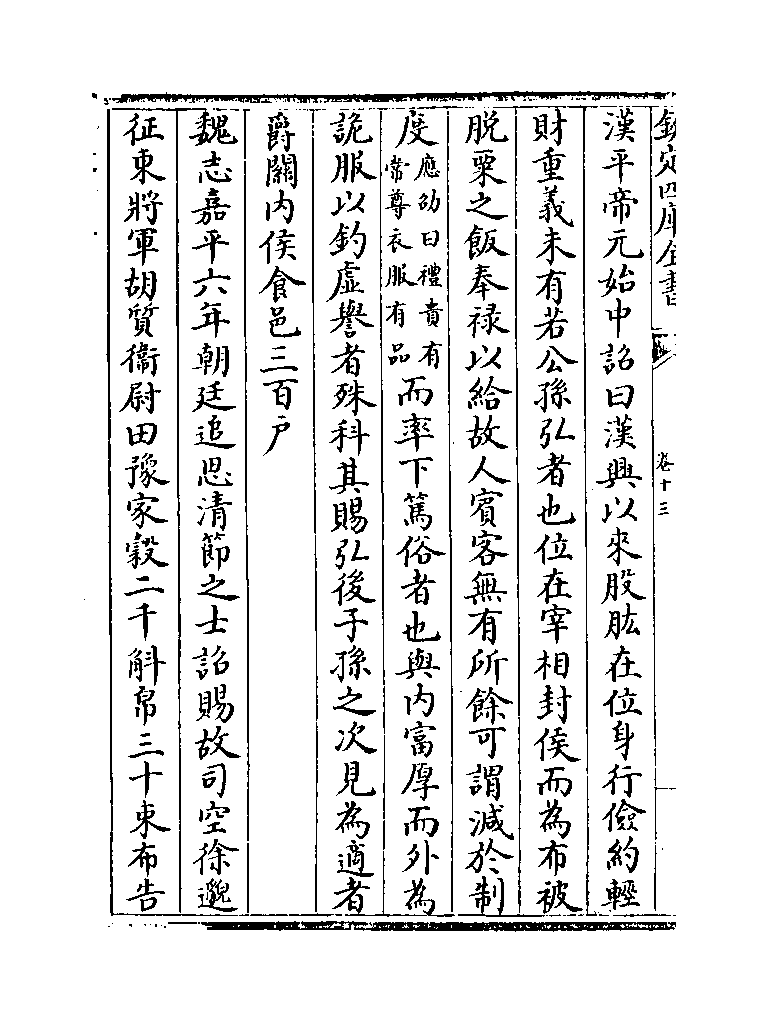 欽定四庫全書
卷十三
漢平帝元始中詔曰漢興以來股肱在位身行儉約輕
財重義未有若公孫弘者也位在宰相封侯而為布被
脱粟之飯奉禄以給故人賓客無有所餘可謂減於制
度應劭曰禮貴有常尊衣服有品而率下篤俗者也與内富厚而外為
詭服以釣虛譽者殊科其賜弘後子孫之次見為適者
爵關内侯食邑三百户
魏志嘉平六年朝廷追思清節之士詔賜故司空徐邈
征東將軍胡質衞尉田豫家穀二千斛帛三十束布告